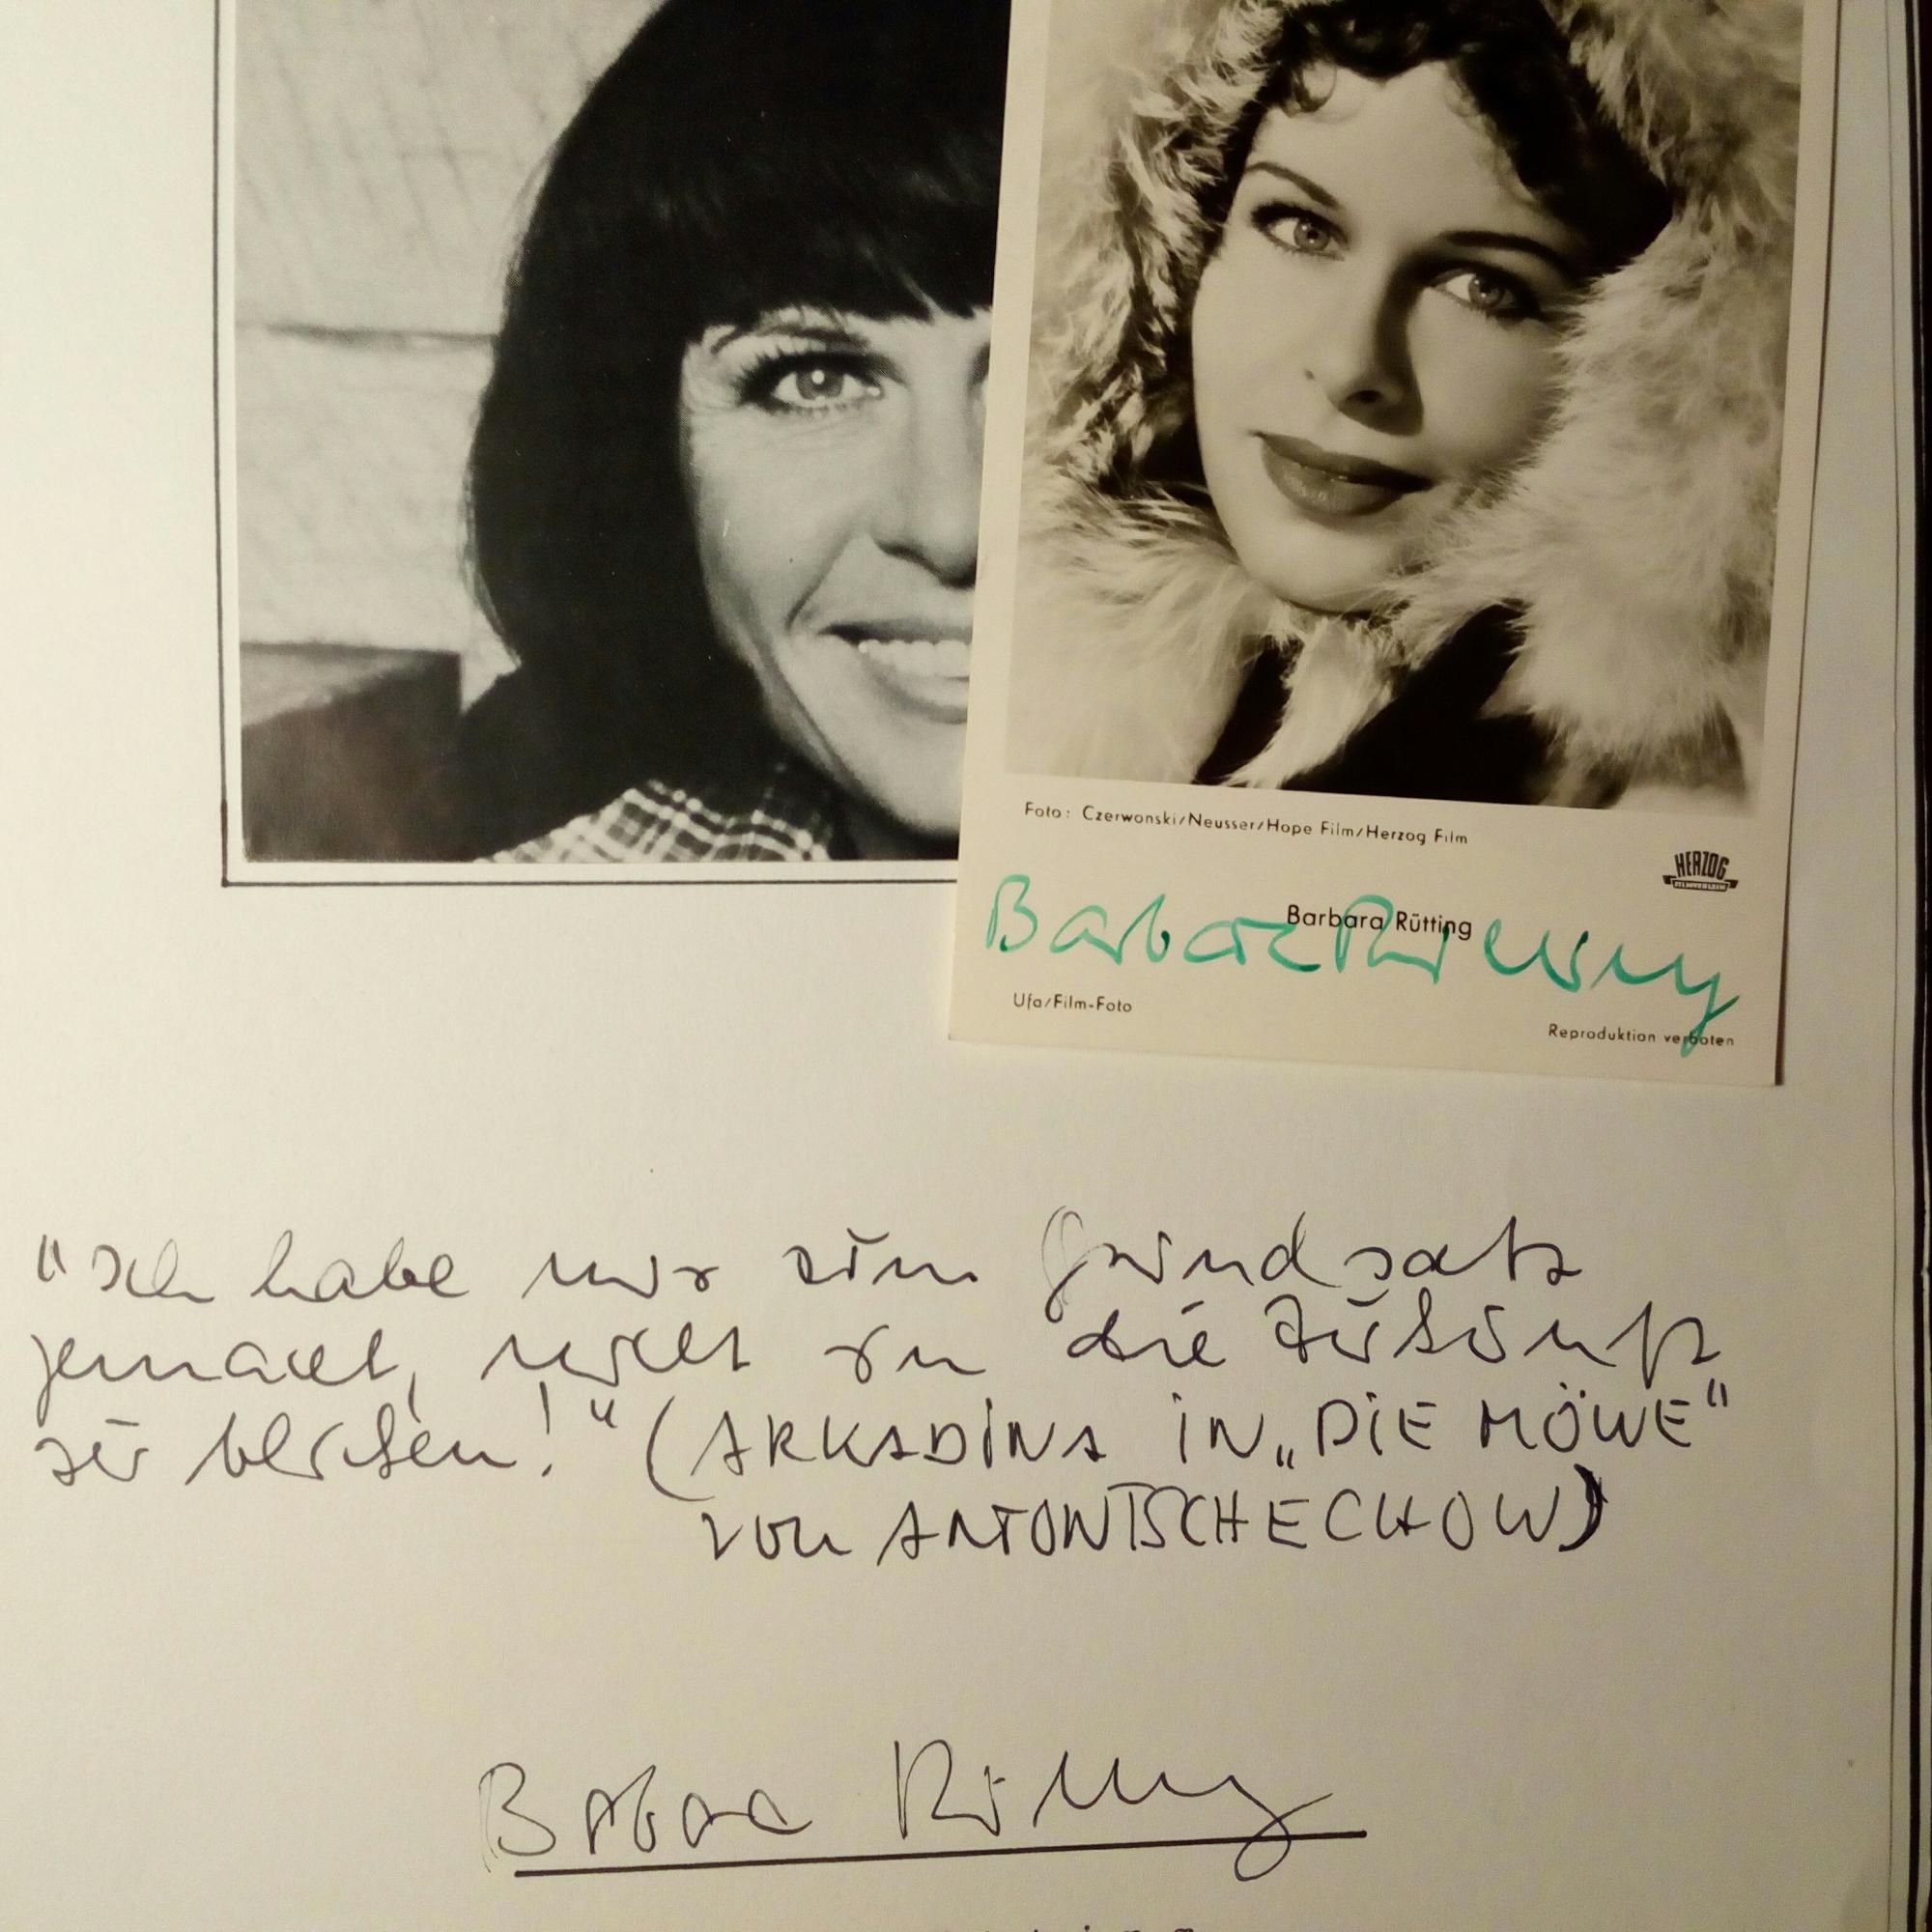 Foto: Czerwonski/Neusser/Hope Film/Herzog Film
HERZOG
FILMVERLEIH
Barbara Rütting
Barbara Rütting
Ufa/Film-Foto
Reproduktion verboten
"Ich habe mir zum Grundsatz
gemacht, nicht in die Zukunft
zu blicken!" (ARKADINA IN „DIE MÖWE"
von ANTON TSCHECHOW)
Barbara Rütting